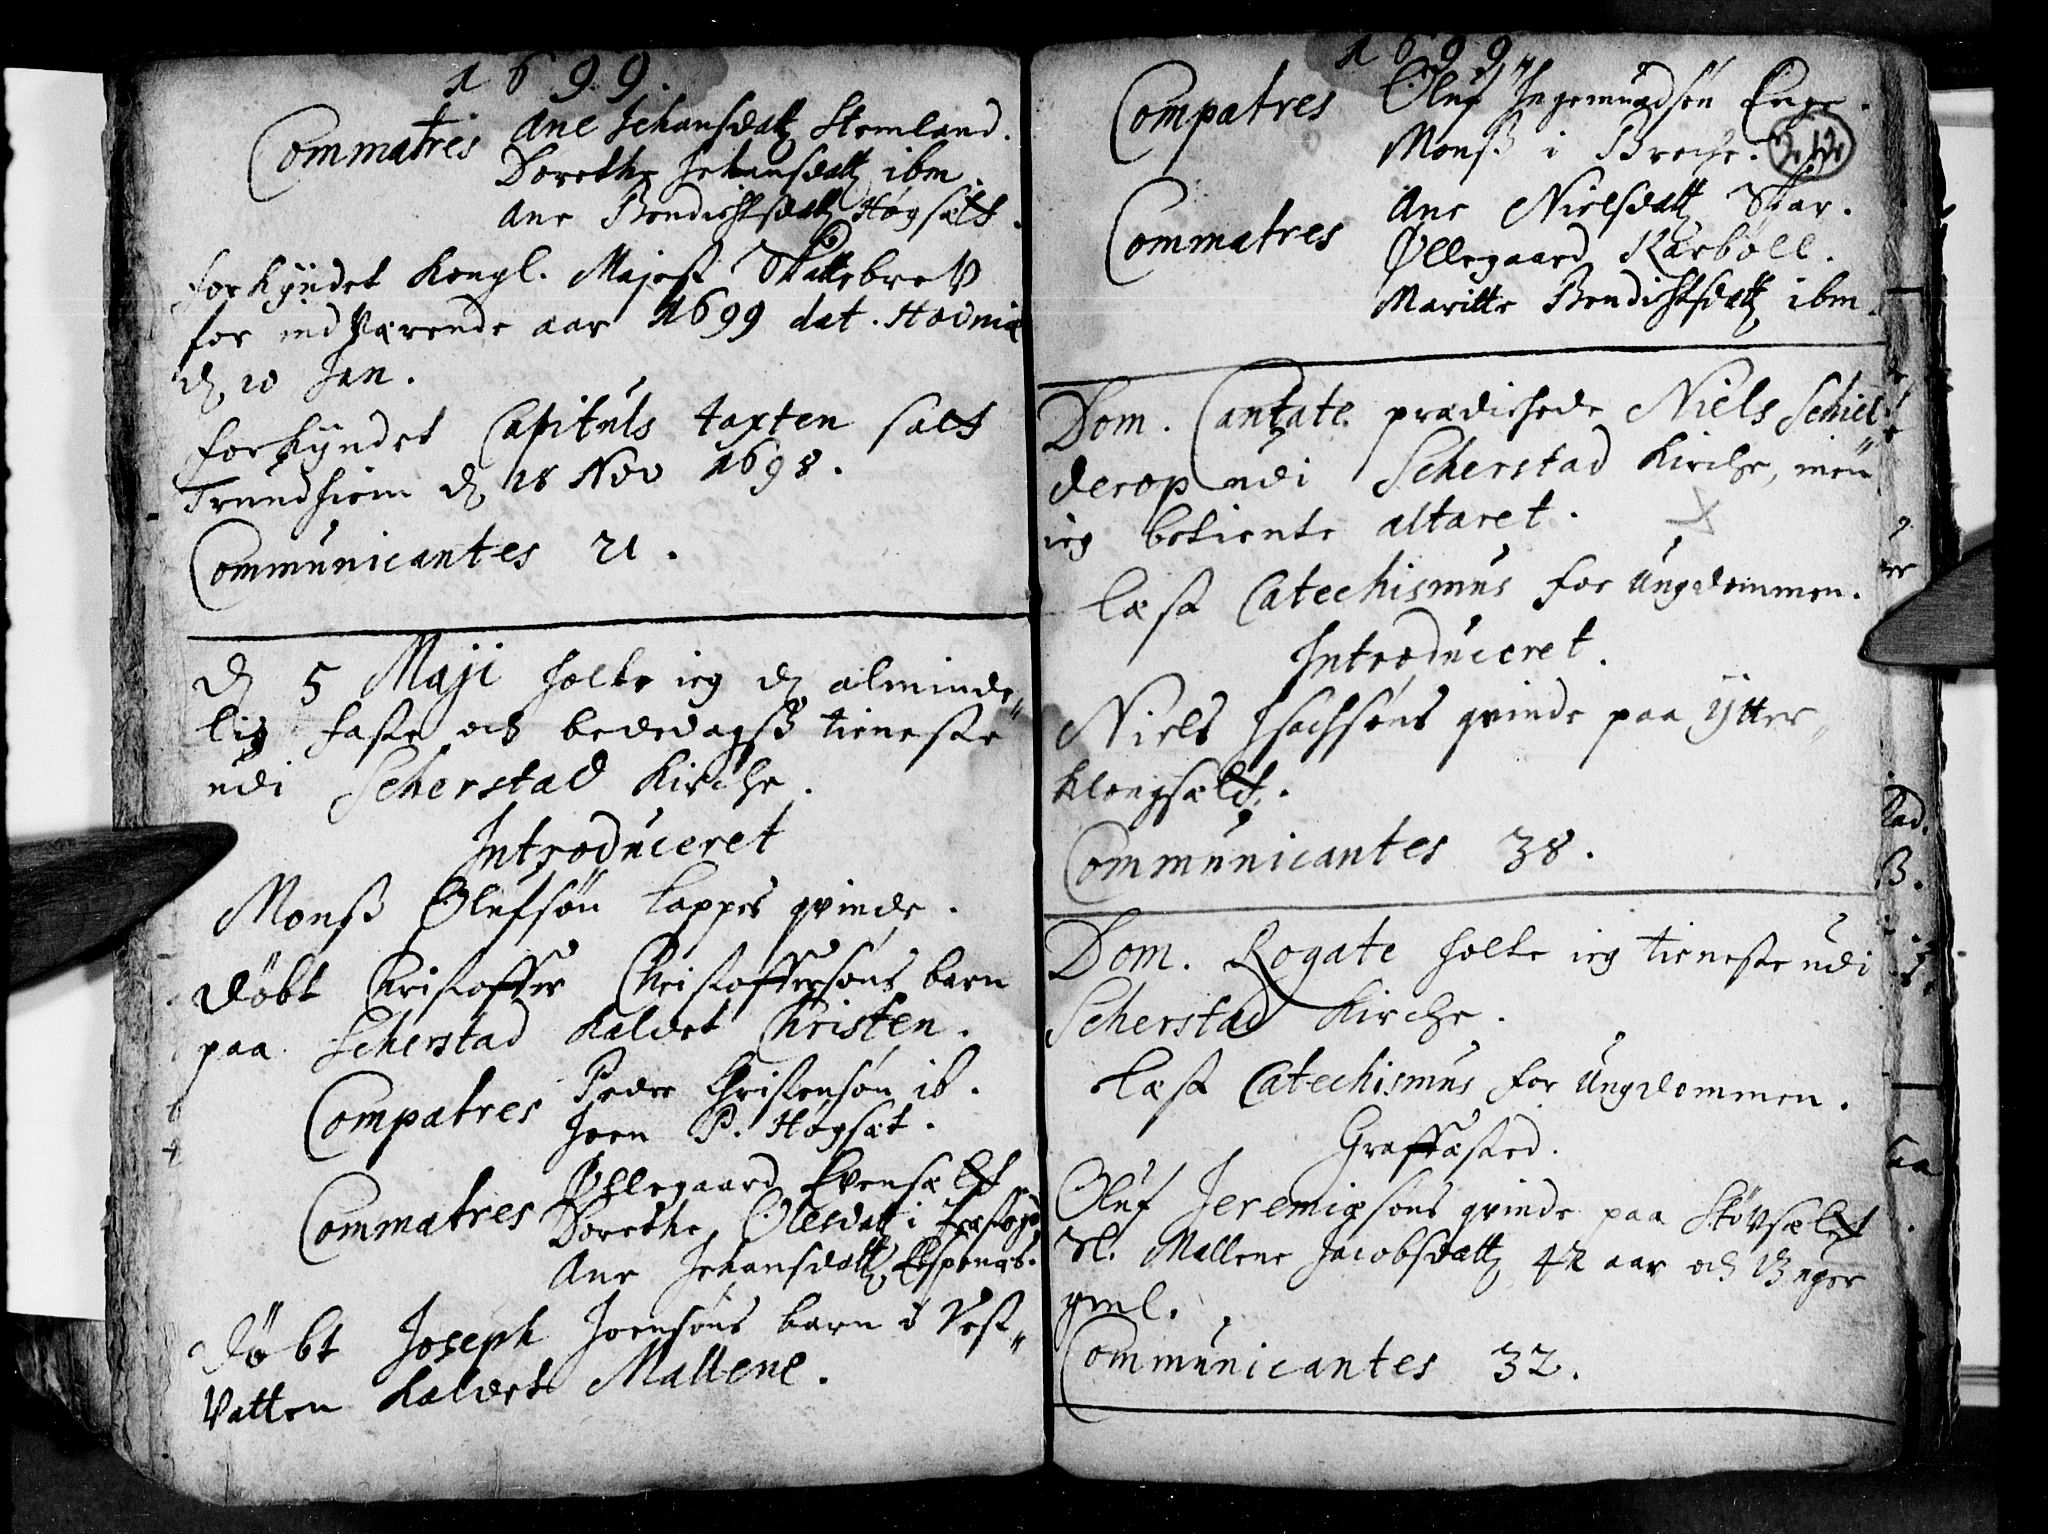 1699.
Commatres Ane Johansdatt Stemland.
Dorethe Johansdatt ibm.
Ane Bendichtsdatt Høgsætt.
forkyndet Kongl. Majest Skattebreff
for indværende aar 1699 dat. Hafniæ
d 10 Jan.
forkyndet Capituls taxten satt
Trundhiem d 18 Nov 1698.
Communicantes 21.
d 5 Maji holte ieg d alminde„
lig faste och bededagß tieneste
udi Scherstad Kirche.
Introduceret
Monß Olufsøn Lappes qvinde.
døbt Christoffer Christoffersøns barn
paa Scherstad kaldet Christen.
Compatres Peder Christensøn ib.
Joen P. Høgsæt.
Commatres Øllegaard Evensætt
Dorethe Olesdatt i
Ane Johansdatt Espenes.
døbt Joseph Joensøns barn i Vest„
vatten kaldet Mallene.
1699
Compatres Oluf Ingemundsøn Enge.
Monß i Breche.
Commatres Ane Nielsdatt Skar.
Øllegaard Karbøll.
Maritte Bendichtsdatt ibm.
Dom. Cantate prædichede Niels Schiel„
derop udi Scherstad Kirche, men
ieg betiente altaret.
Læst Catechismus for Ungdommen.
Introduceret.
Niels Isachsøns qvinde paa Ytter„
Klongsætt.
Communicantes 38.
Dom. Rogate holte ieg tieneste udi
Scherstad Kirche.
Læst Catechismus for Ungdommen.
Graffæsted.
Oluf Jeremiæsøns qvinde paa Støvsætt
Sl. Mallene Jacobsdatt 42 aar och uger
gml.
Communicantes 32.